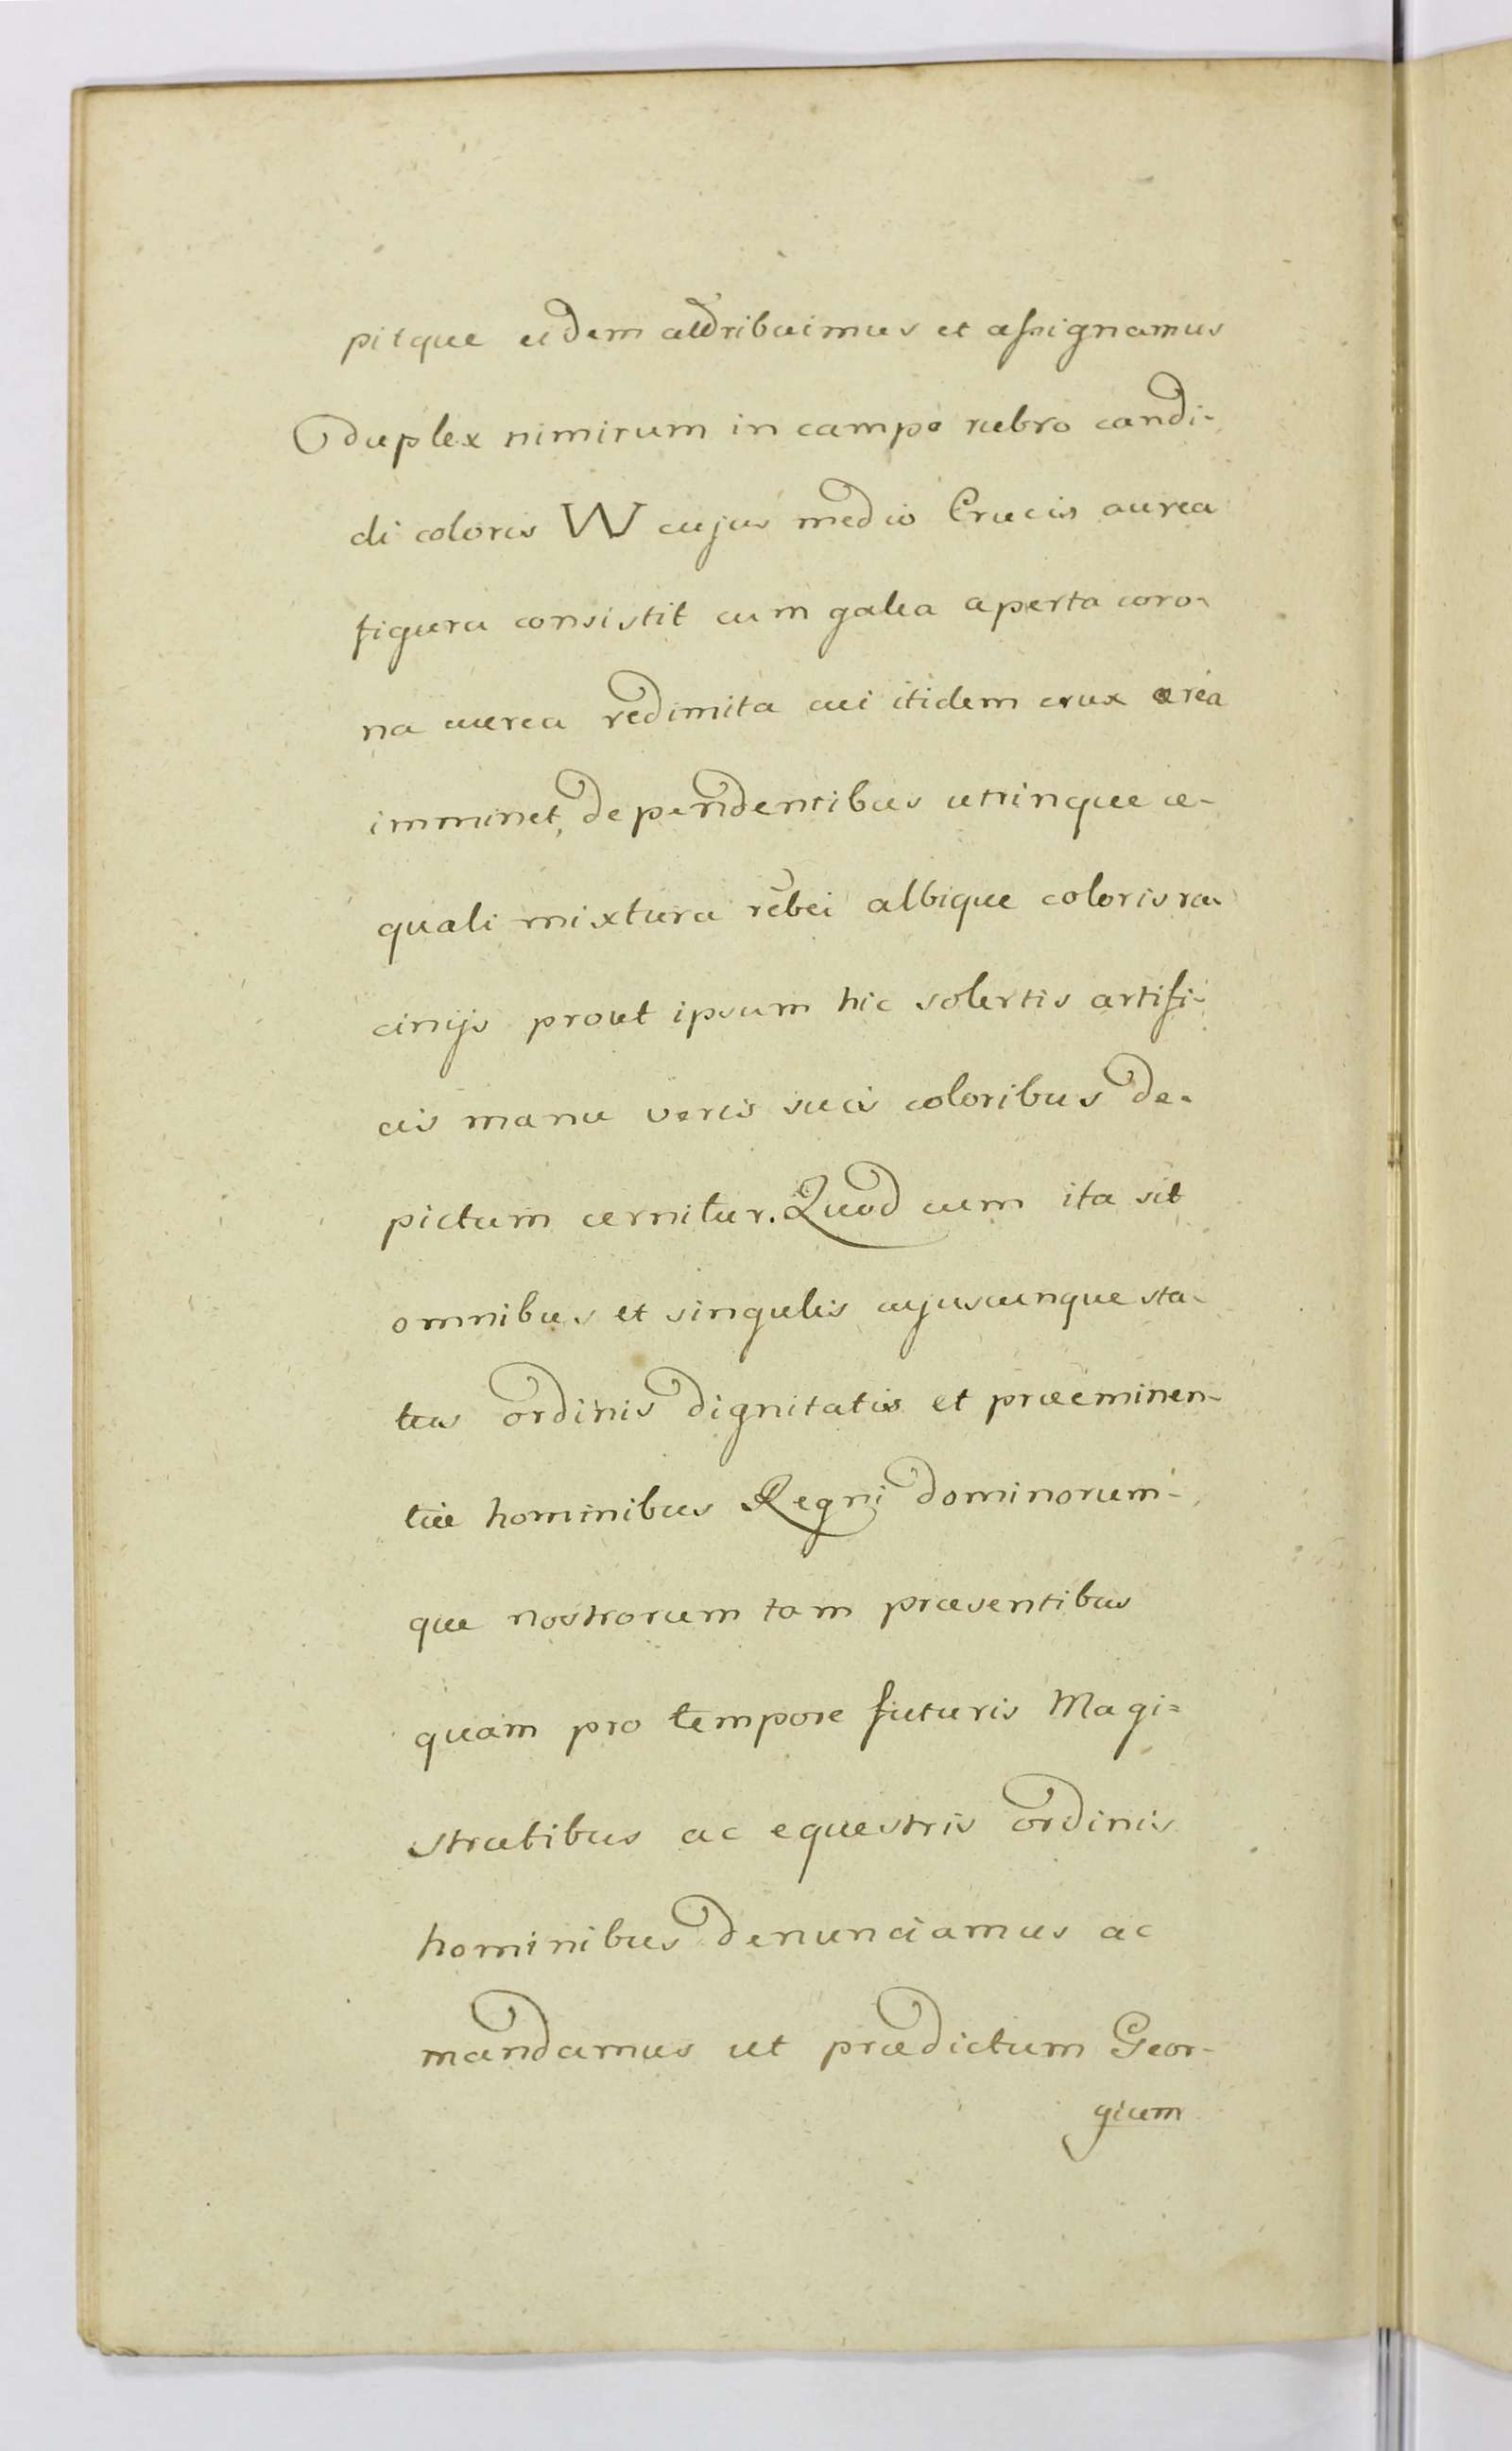 pitque eidem attribuimus et assignamus
duplex nimirum in campo rubro candi-
di coloris W cujus medio Crucis aurea
figura consistit cum galea aperta coro-
na aurea redimita cui itidem crux area
imminet, dependentibus utrinque æ-
quali mixtura rubei albique coloris la-
cinijs prout ipsum hic solertis artifi-
cis manu veris suis coloribus de-
pictum cernitur. Quod cum ita sit
omnibus et singulis cujuscunque sta-
tus ordinis dignitatis et præeminen-
tiæ hominibus Regni dominorum-
que nostrorum tam præsentibus
quam pro tempore futuris Magi=
stratibus ac equestris ordinis
hominibus denunciamus ac
mandamus ut prædictum Geor-
gium